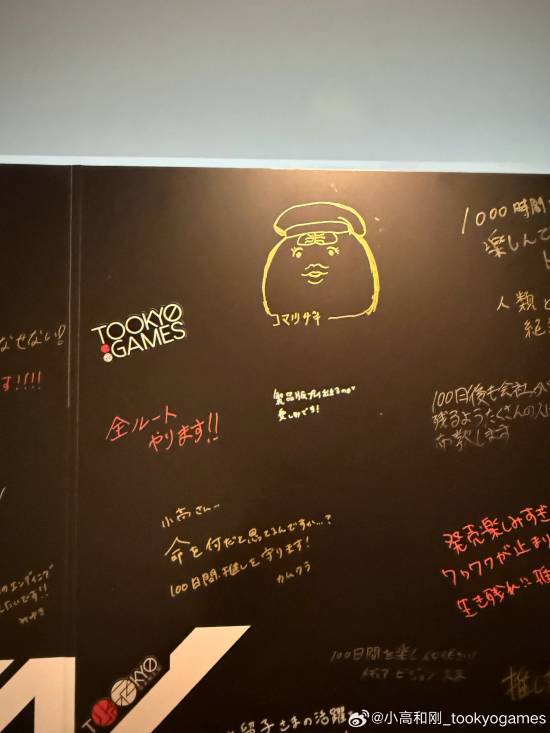 1000時間
楽しんで
TOOKYO
GAMES
コマツザキ
人類
絶
なせない!
す!!!!
全ルート
やります!!
製品版プレイ出来るのが
楽しみです!
100日後も会社が
残るようたくさんの人に
布教します
小高さん…
命を何だと思ってるんですか…?
100日間、推しを守ります!
カムクラ
発売楽しみすぎ
ワクワクが止まり
生き残れ!!
のエンディング
たいです!!
100日間を楽しんでください!
メディアビジョン
推し
TOOKYO
留子さまの活躍
@小高和刚_tookyogames